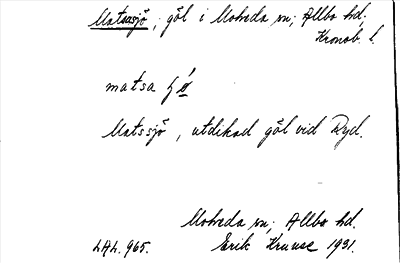 Matsasjö, göl i Moheda sn; Allbo hd;
Kronob. l.
matsa
Matssjö, utdikad göl vid Ryd.
Moheda sn; Allbo hd.
LAL. 965. Erik Kruuse 1931.